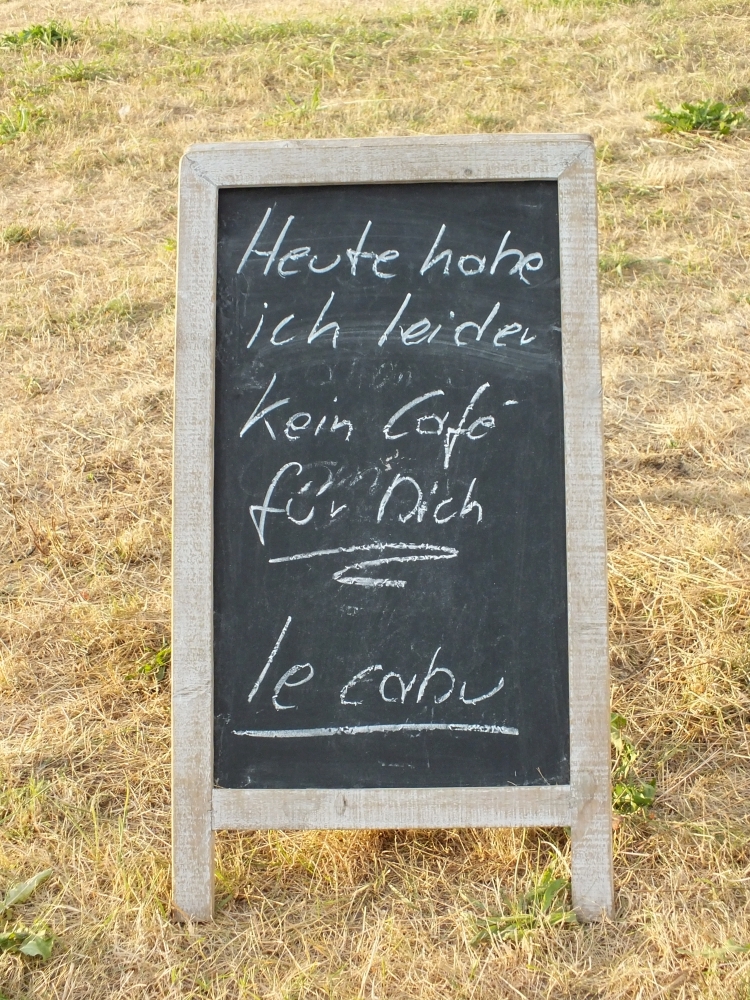 Heute habe
ich leider
kein Café
für Dich
le cabu